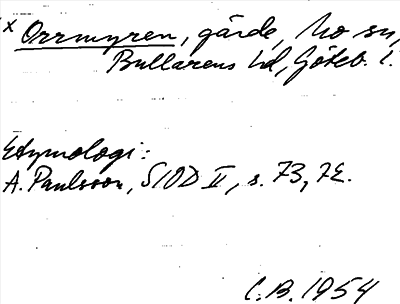 x Orrmyren, gärde, Mo sn,
Bullarens hd, Göteb. l.
Etymologi:
A. Paulsson, SIOD II, s. 73, 72.
C.B. 1954